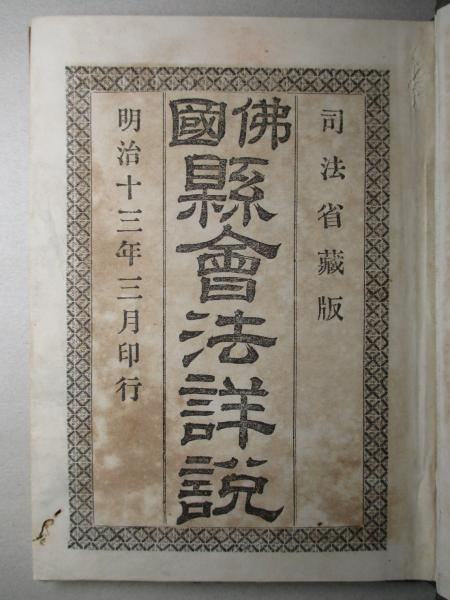 司法省藏版
佛國
縣會法詳說
明治十三年三月印行